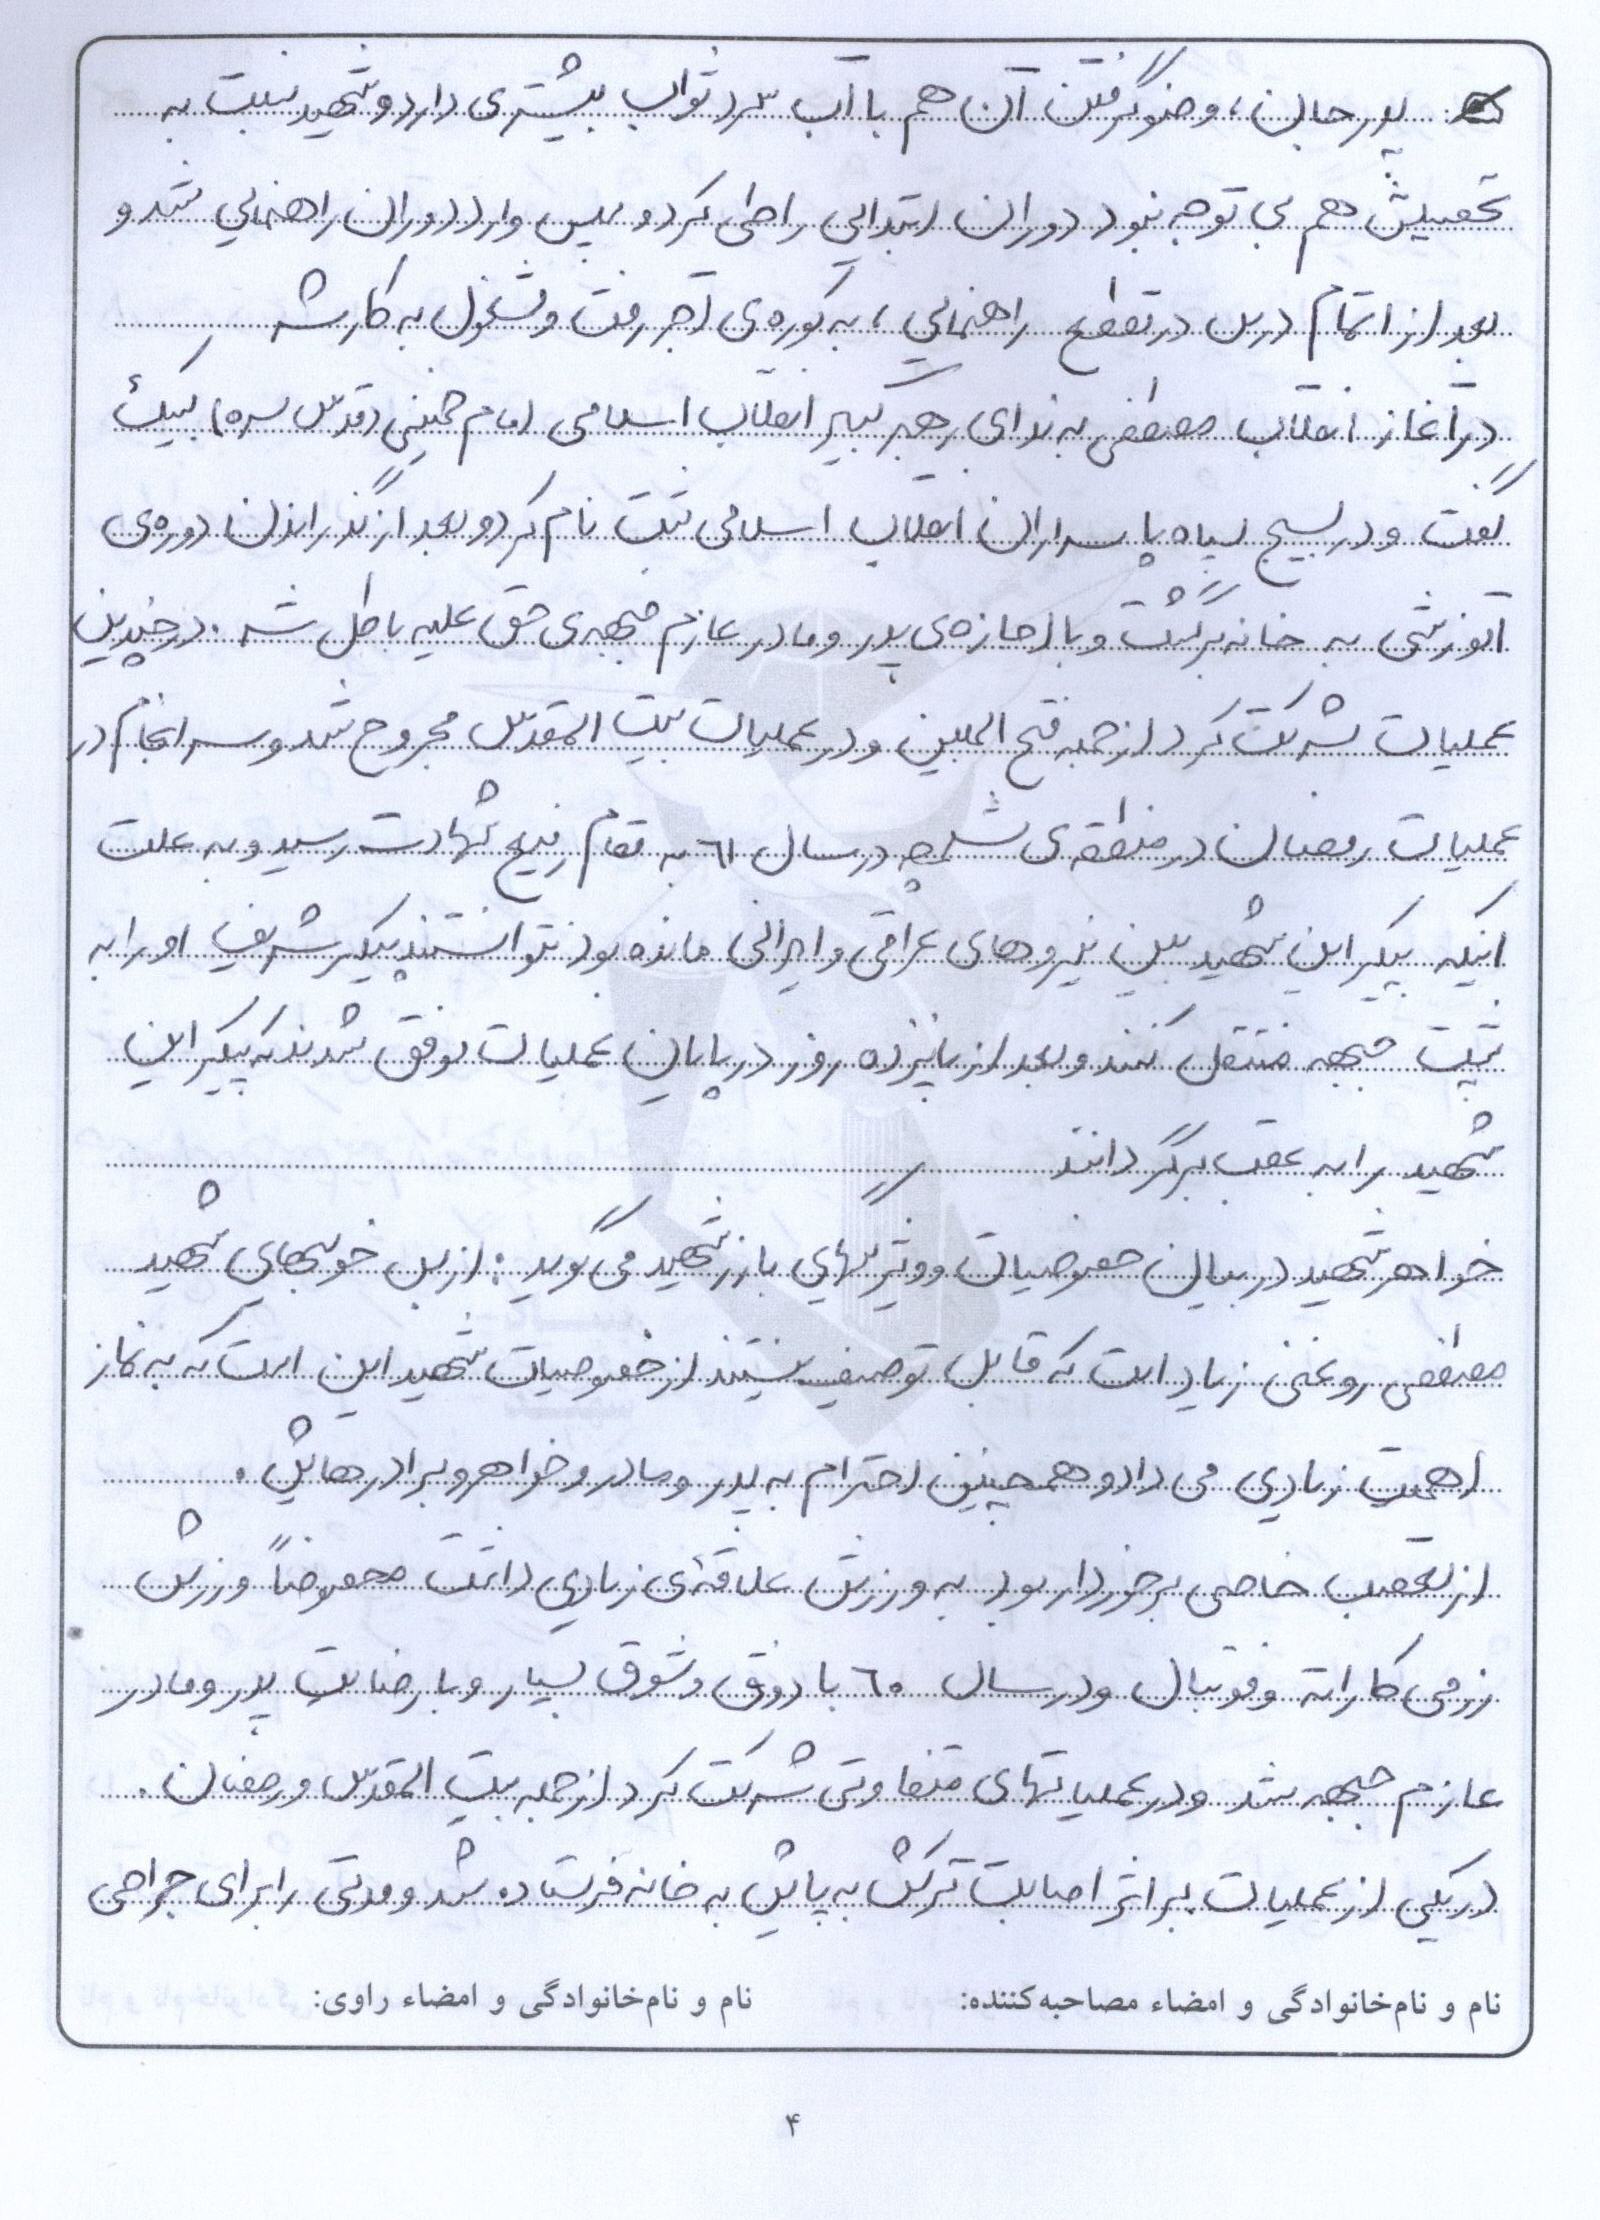 پدر جان، وضو گرفتن آن هم با آب سرد ثواب بیشتری دارد و شهید نسبت به
تحصیلش هم بی توجه نبود دوران ابتدایی را طی کرد و سپس وارد دوران راهنمایی شد و
بعد از اتمام درس در مقطع راهنمایی، به کوره‌ی آجر رفت و مشغول به کار شد
در آغاز انقلاب مصطفی به ندای رهبر کبیر انقلاب اسلامی امام خمینی (قدس سره) لبیک
گفت و در بسیج سپاه پاسداران انقلاب اسلامی ثبت نام کرد و بعد از گذراندن دوره‌ی
آموزشی به خانه برگشت و با اجازه‌ی پدر و مادر عازم جبهه‌ی حق علیه باطل شد. در چندین
عملیات شرکت کرد از جمله فتح المبین و در عملیات بیت المقدس مجروح شد و سر انجام در
عملیات رمضان در منطقه‌ی شلمچه در سال ٦١ به مقام رفیع شهادت رسید و به علت
اینکه پیکر این شهید بین نیروهای عراقی و ایرانی مانده بود نتوانستند پیکر شریف او را به
پشت جبهه منتقل کنند و بعد از پانزده روز در پایان عملیات موفق شدند که پیکر این
شهید را به عقب برگردانند
خواهر شهید در بیان خصوصیات و ویژگیهای بارز شهید می گوید: از بس خوبیهای شهید
مصطفی روغنی زیاد است که قابل توصیف نیستند از خصوصیات شهید این است که به نماز
اهمیت زیادی می داد و همچنین احترام به پدر و مادر و خواهر و برادرهایش.
از تعصب خاصی برخوردار بود به ورزش علاقه‌ی زیادی داشت مخصوصاً ورزش
رزمی کاراته و فوتبال و در سال ٦٠ با ذوق و شوق بسیار و با رضایت پدر و مادر
عازم جبهه شد و در عملیاتهای متفاوتی شرکت کرد از جمله بیت المقدس و رمضان.
در یکی از عملیات بر اثر اصابت ترکش به پایش به خانه فرستاده شد و مدتی را برای جراحی
نام و نام‌خانوادگی و امضاء مصاحبه‌کننده: نام و نام‌خانوادگی و امضاء راوی:
۴